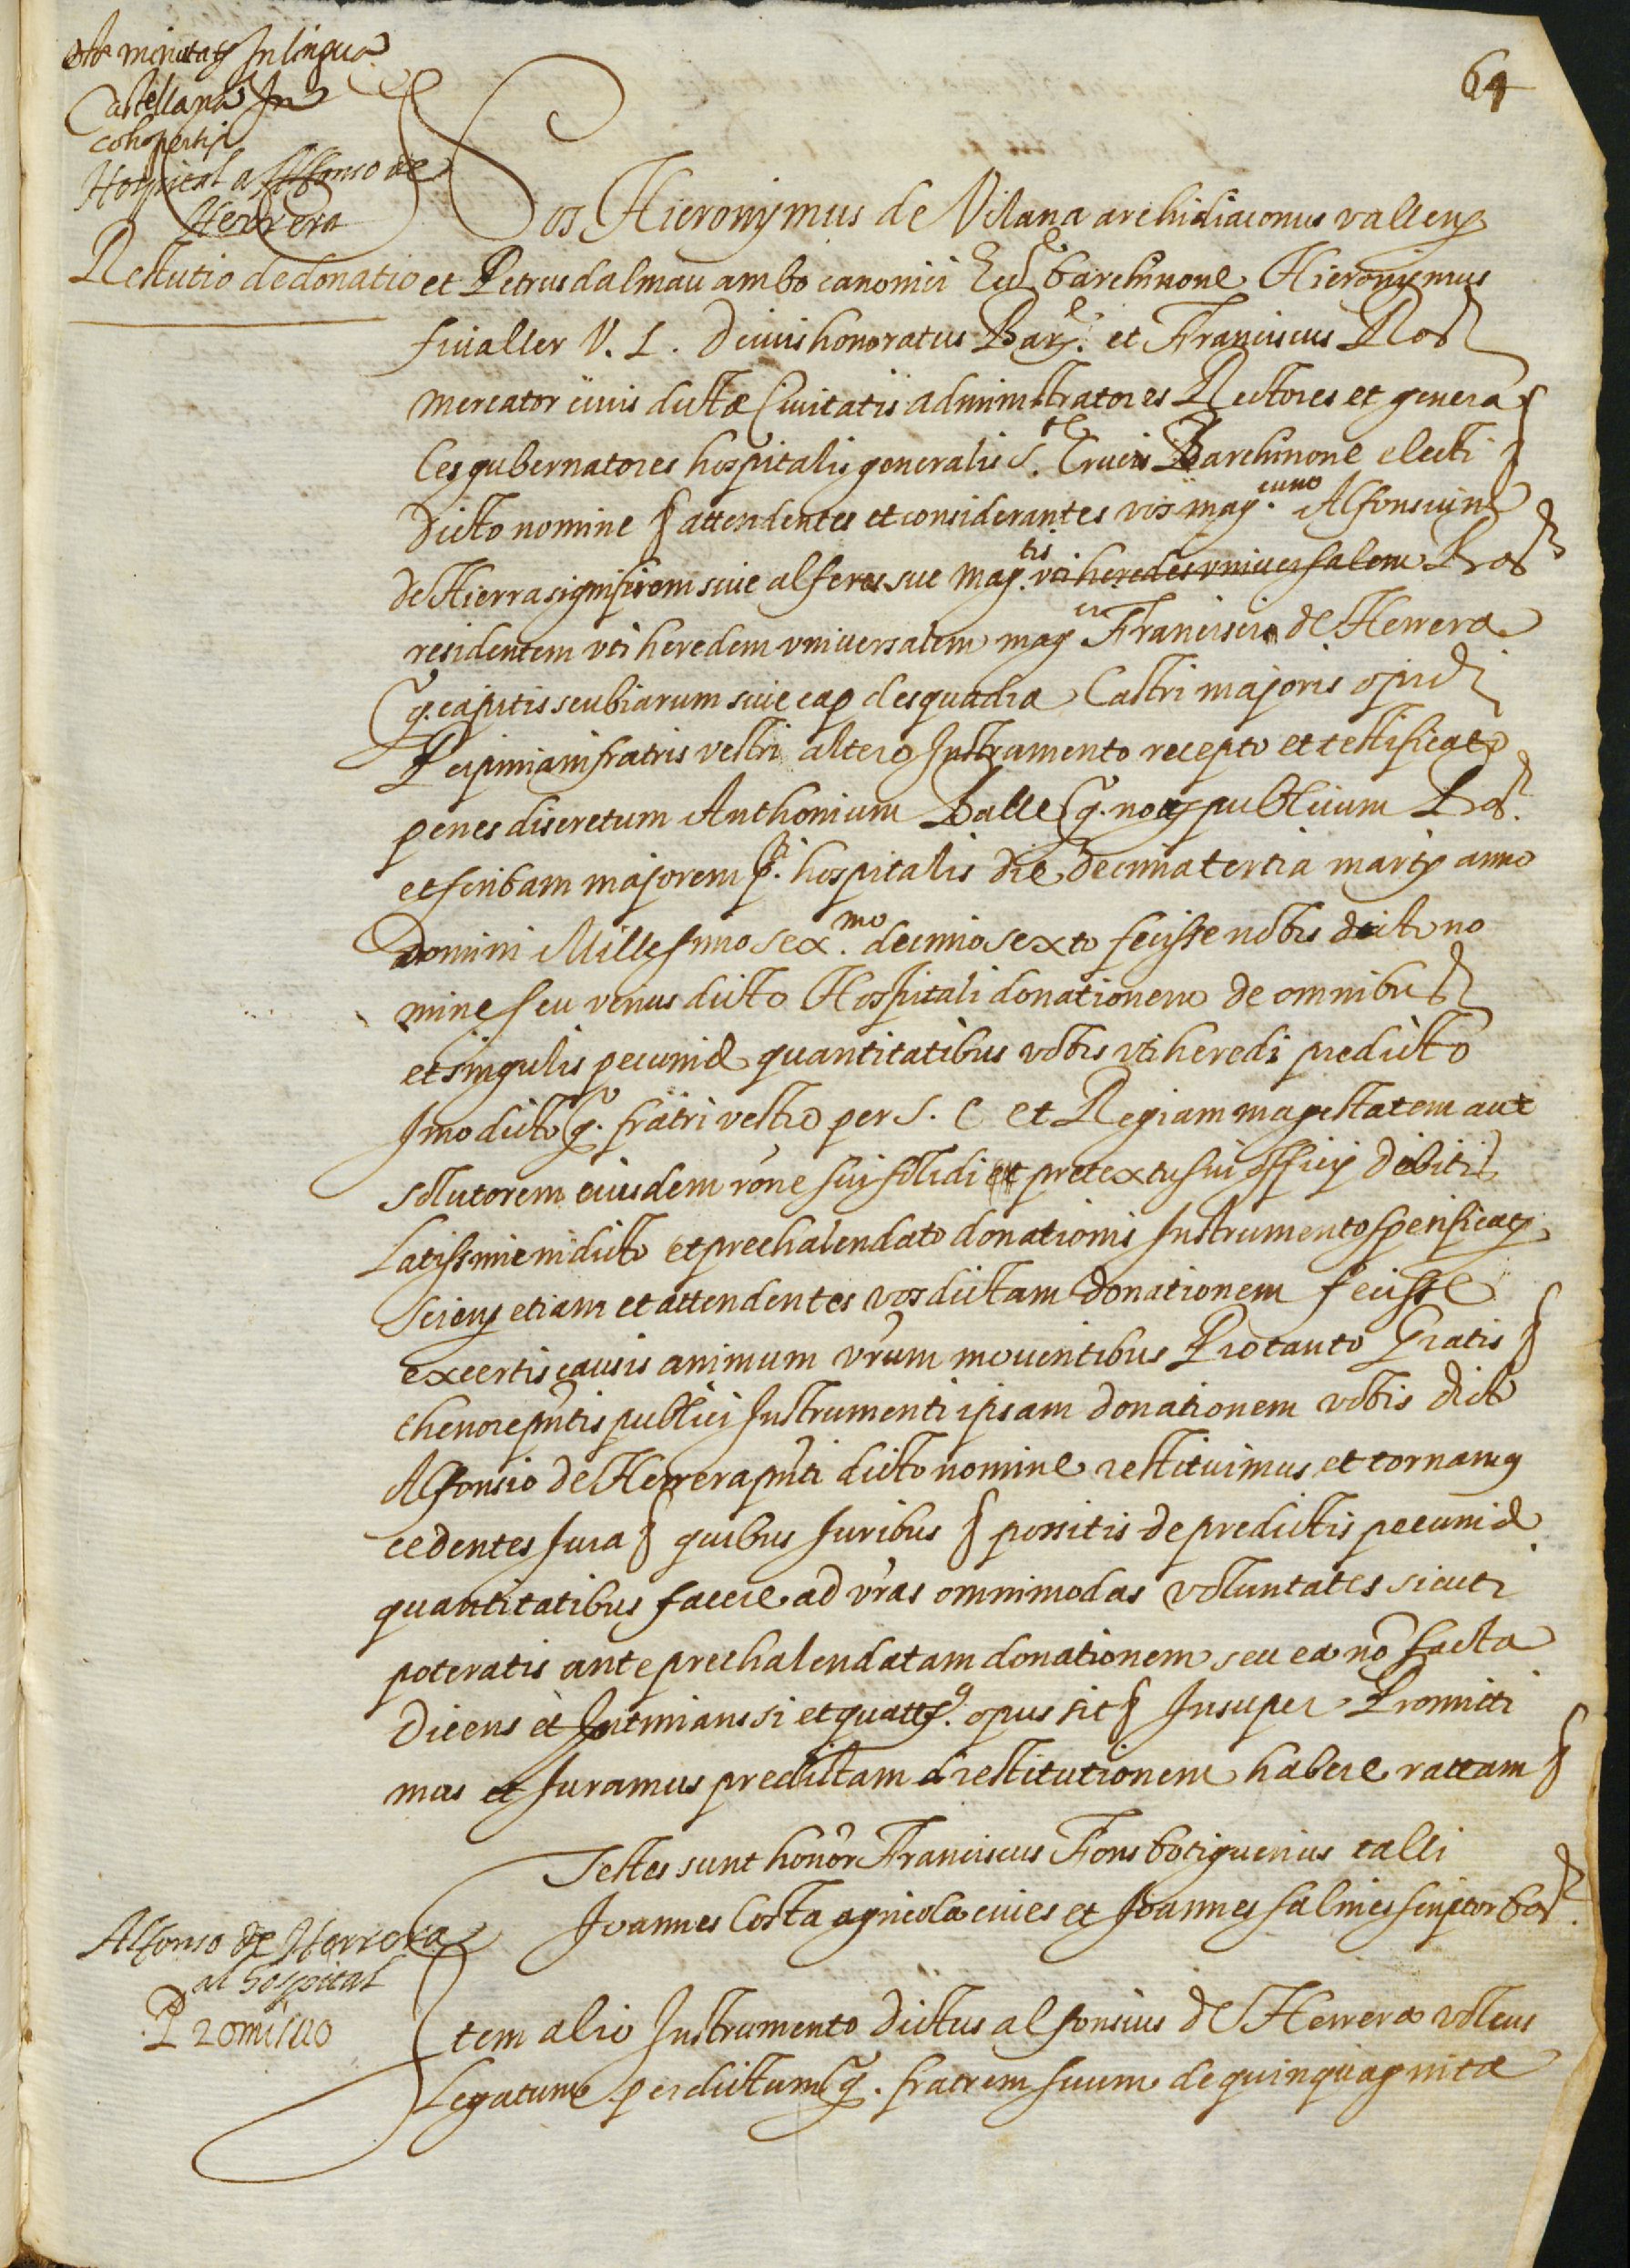 64
est minutatũ In lingua
Castellana In
cohopertis
Hospital a Alfonso de
Herrera
Restutio de donatio
Nos Hieronymus de Vilana archidiaconus vallens
et Petrus dalmau ambo canonici Eccle barchinone Hieronymus
fivaller V. I. D civis honoratus Barne. et Franciscus Ros
mercator civis dictæ Civitatis administratores Rectores et genera
les gubernatores hospitalis generalis S.te Crucis Barchinone electi §
dicto nomine § attendentes et considerantes vos mag.cum Alfonsium
de Hierra signiferem sive alferes sue Mag.tis uti heredes universalem Bar
residentem uti heredem universalem mag.ci Francisci de Herrera
q. capitis scubiarum sive cap desquadra Castri majoris opidi
Perpiniani fratris vestri altero Instrumento recepto et testificato
penes discretum Anthonium Batlle q. nots publicum Bar.
et scribam majorem p.ti hospitalis die decima tertia martij anno
Domini Millesimo sex.mo decimo sexto fecisse nobis dicto no
mine seu verius dicto Hospitali donationem de omnibus
et singulis pecuniæ quantitatibus vobis uti heredi predicto
Imo dicto q. fratri vestro per S. C et Regiam magestatem aut
solutorem eiusdem rõne sui solidi et pretextu sui officij debitis
Latissime in dicto et prechalendato donationis Instrumento spensificatis
Sciens etiam et attendentes vos dictam donationem fecisse
ex certis causis animum vrũm moventibus Protanto Gratis §
thenore pntis publici Instrumenti ipsam donationem vobis dicto
Alfonsio de Herrera pnti dicto nomine restituimus et tornamus
cedentes Jura § quibus Juribus § possitis de predictis pecuniæ
quantitatibus facere ad vras omnimodas voluntates sicuti
poteratis ante prechalendatam donationem seu ea nõ facta
Dicens et Intimans si et quatts. opus sit § Insuper Promitti
mus et Juramus predictam restitutionem habere rattam §
Testes sunt honor Franciscus Fons botiguerius talli
Joannes Costa agricola cives et Joannes salines scriptor bar.
Alfonso de Herrera
al hospital
Promissio
Item alio Instrumento dictus alfonsius de Herrera volens
Legatum per dictum q. fratrem suum de quinquaginta